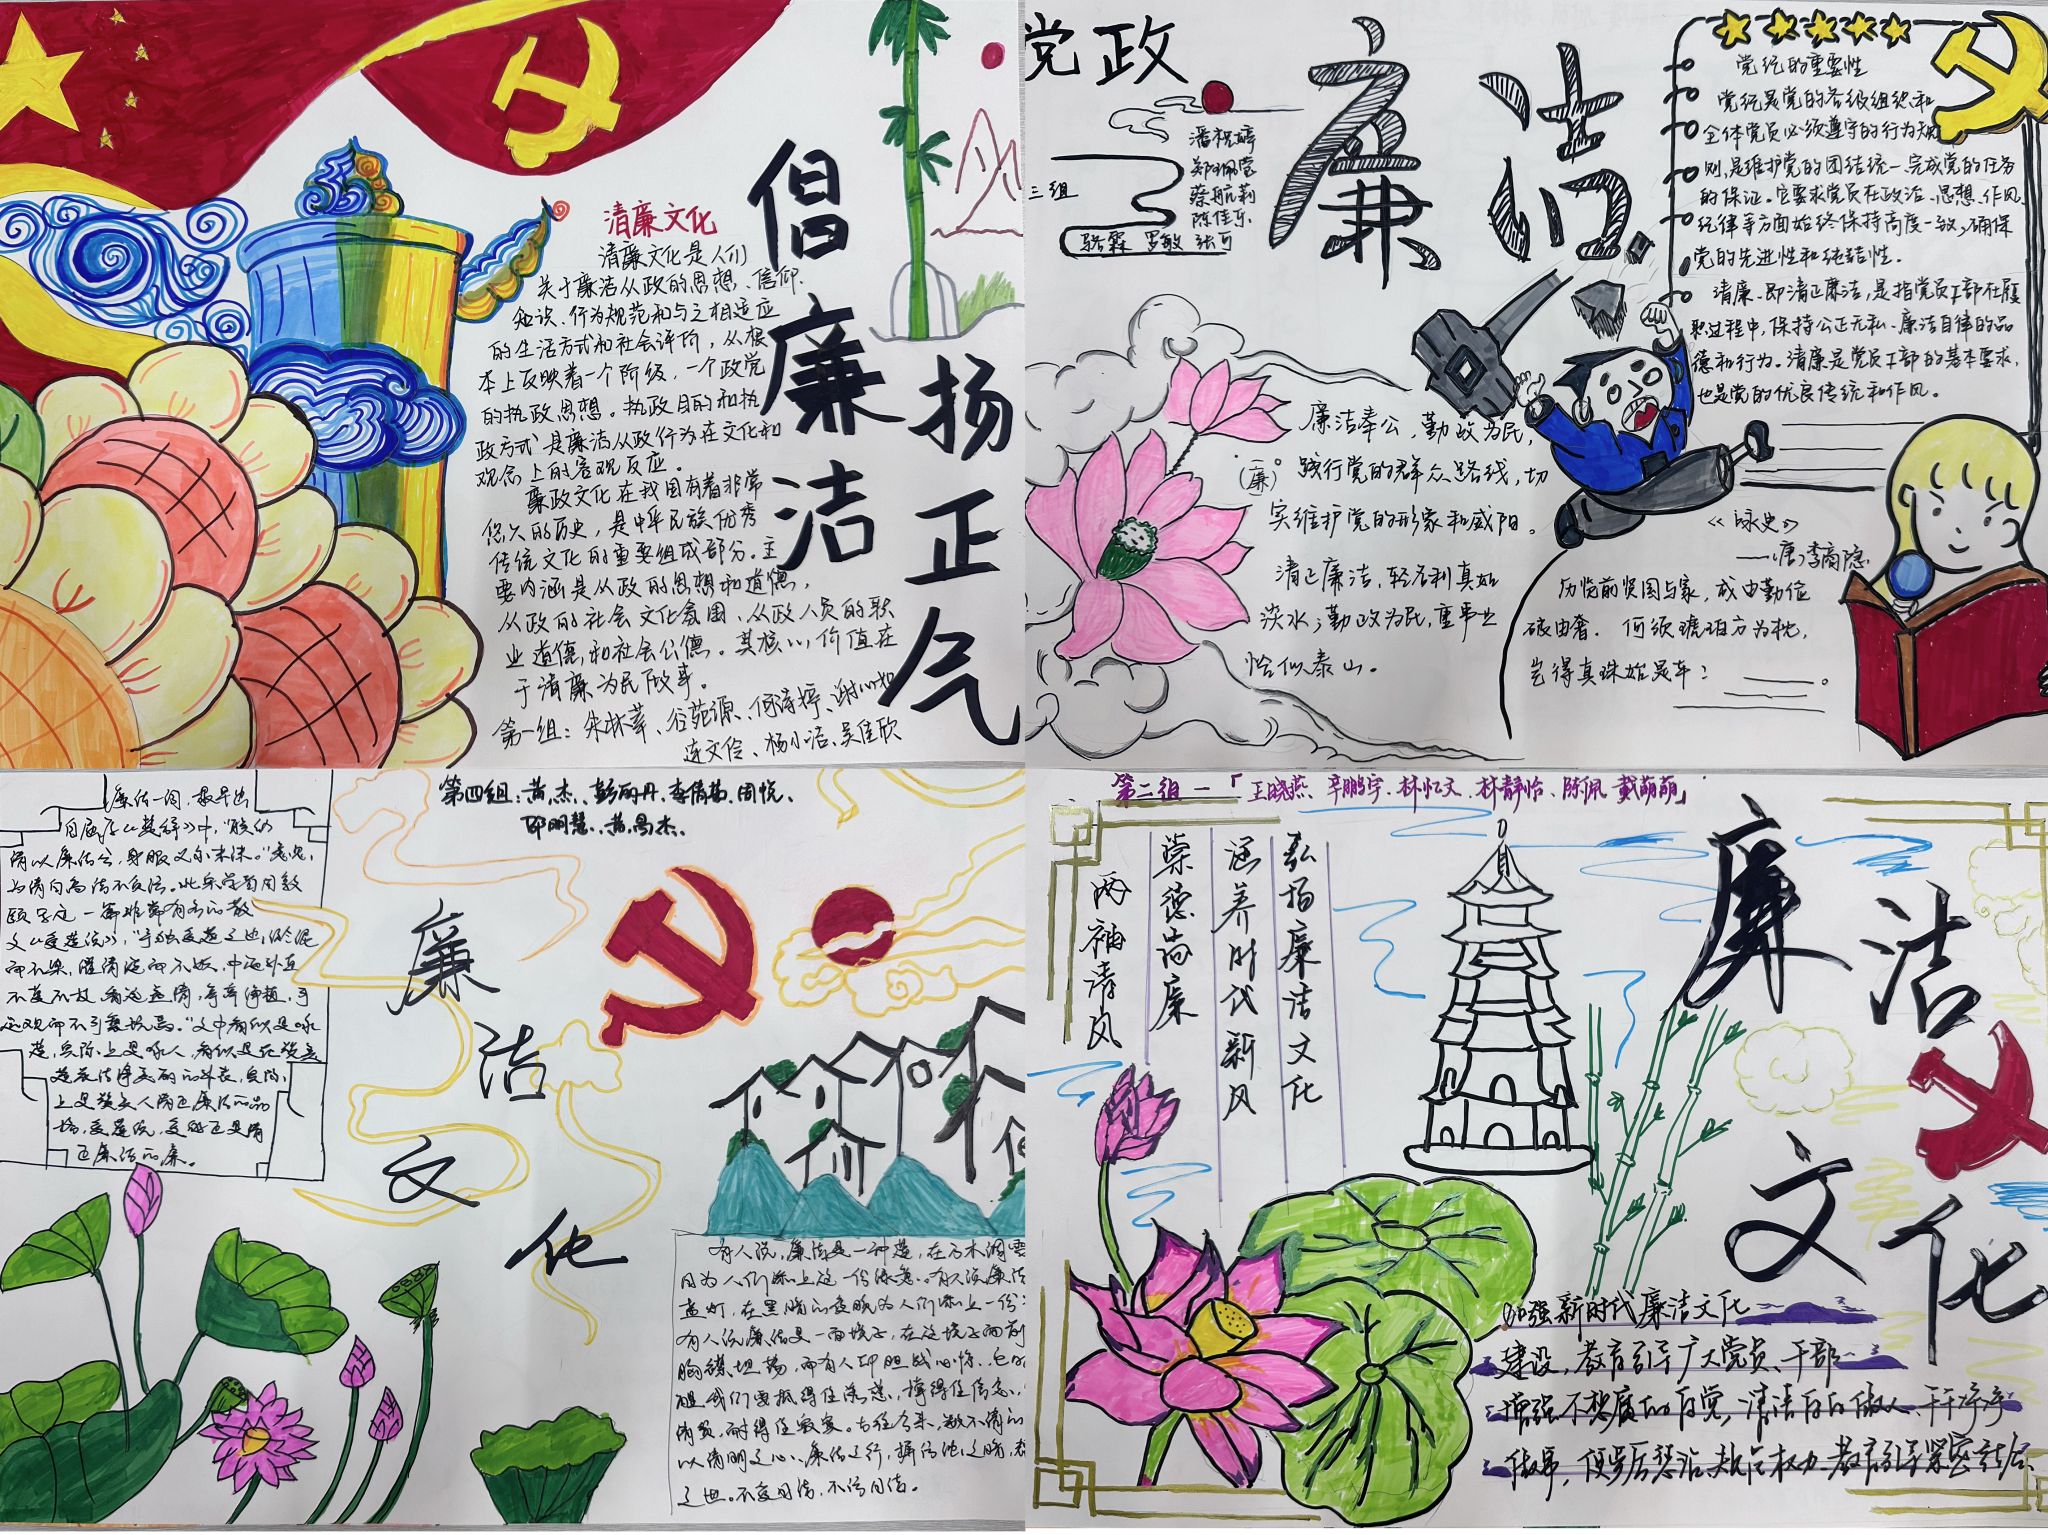 倡廉洁
扬正气
清廉文化
清廉文化是人们
关于廉洁从政的思想、信仰、
知识、行为规范和与之相适应
的生活方式和社会评价，从根
本上反映着一个阶级，一个政党
的执政思想。执政目的和执
政方式是廉洁从政行为在文化和
观念上的客观反应。
廉政文化在我国有着非常
悠久的历史，是中华民族优秀
传统文化的重要组成部分。主
要内涵是从政的思想和道德，
从政的社会文化氛围、从政人员的职
业道德，和社会公德。其核心价值在
于清廉为民做事。
第一组：朱林苹、谷苑源、何诗婷、谢心如
连文伶、杨小洁、吴佳欣
党政
廉洁
三组
潘祝婷
郑佩莹
蔡航莉
陈佳乐
骆霖 罗敏 张可
党纪的重要性
党纪是党的各级组织和
全体党员必须遵守的行为规
则，是维护党的团结统一完成党的任务
的保证。它要求党员在政治、思想、作风、
纪律等方面始终保持高度一致，确保
党的先进性和纯洁性。
清廉，即清正廉洁，是指党员干部在履
职过程中，保持公正无私、廉洁自律的品
德和行为。清廉是党员干部的基本要求，
也是党的优良传统和作风。
廉洁奉公，勤政为民，
(廉)。践行党的群众路线，切
实维护党的形象和威阳。
清正廉洁，轻名利真如
淡水；勤政为民，重事业
恰似泰山。
《咏史》
——(唐)李商隐
历览前贤国与家，成由勤俭
破由奢。何须琥珀方为枕，
岂得真珠始是车？
廉洁一词，最早出
自屈原《楚辞》中，“朕幼
清以廉洁兮，身服义而未沫。”
文《爱莲说》，“予独爱莲之出淤泥
而不染，濯清涟而不妖，中通外直
不蔓不枝，香远益清，亭亭净植，可
远观而不可亵玩焉。”文中看似是咏
莲，实际上是咏人，看似是在赞美
莲花洁净美丽的外表，实际
上是赞美人清正廉洁的品
格，爱莲说，爱的正是清
正廉洁的廉。
第四组：黄杰、彭丽丹、李倩茹、周悦、
邱明慧、黄昌杰、
廉洁文化
有人说，廉洁是一种莲，在
因为人们添上这一份绿意。有人说廉洁
盏灯，在黑暗的夜晚为人们添上一份
有人说廉洁是一面镜子，在这镜子面前
胸襟坦荡，而有人却胆战心惊，
醒我们要抵得住诱惑，撑得住信念，
清贫，耐得住寂寞。古往今来，数不清的
以清明之心，廉洁之行，
之世。不变自清，不污自洁。
第二组一「王晓燕、辛鹏宇、林忆文、林静怡、陈佩、戴萌萌」
弘扬廉洁文化
涵养时代新风
崇德尚廉
两袖清风
廉洁
文化
加强新时代廉洁文化
建设，教育引导广大党员、干部
增强不想腐的自觉，清清白白做人、干干净净
做事，